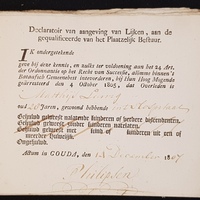 Declaratoir van aangeving van Lijken, aan de
gequalificeerde van het Plaatzelijk Bestuur.
IK ondergetekende
geve bij deze kennis, en zulks ter voldoening aan het 24 Art.
der Ordonnantie op het Recht van Successie, alomme binnen 's
Bataafsch Gemeenebest intevoorderen, bij Hun Hoog Mogende
gearresteerd den 4 October 1805, dat Overleden is
oud Jaaren, gewoond hebbende
Gehuwd geweest nalatende kinderen of verdere descendenten.
Gehuwd geweest zonder kinderen natelaten.
Gehuwd geweest met kind of kinderen uit een of
meer Huwelijken.
Ongehuwd.
Actum in GOUDA, den 15 December 1807